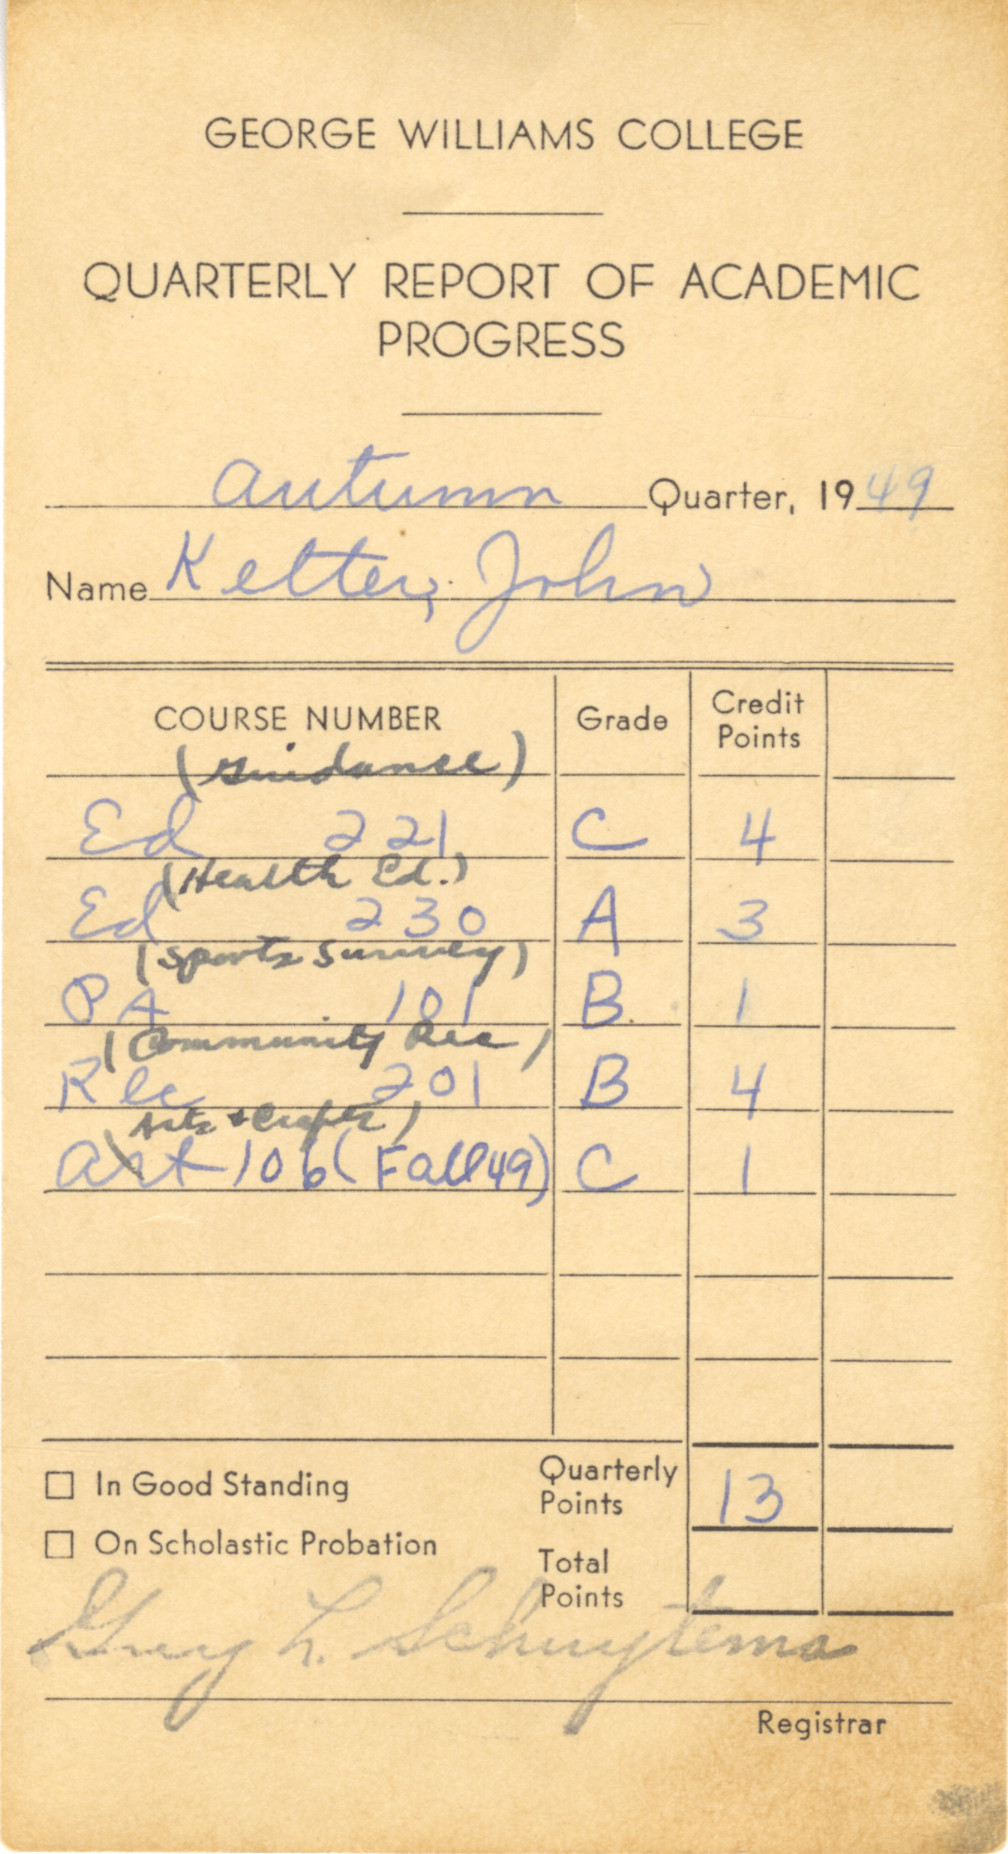 GEORGE WILLIAMS COLLEGE
QUARTERLY REPORT OF ACADEMIC
PROGRESS
Autumn Quarter, 1949
Name Ketter, John
COURSE NUMBER Grade Credit Points
(Guidance)
Ed 221 C 4
(Health Ed.)
Ed 230 A 3
(Sports Survey)
PA 101 B 1
(Community Rec)
Rec 201 B 4
(Arts + Crafts)
Art 106 (Fall 49) C 1
In Good Standing Quarterly Points 13
On Scholastic Probation Total Points
L. Schuytema
Registrar